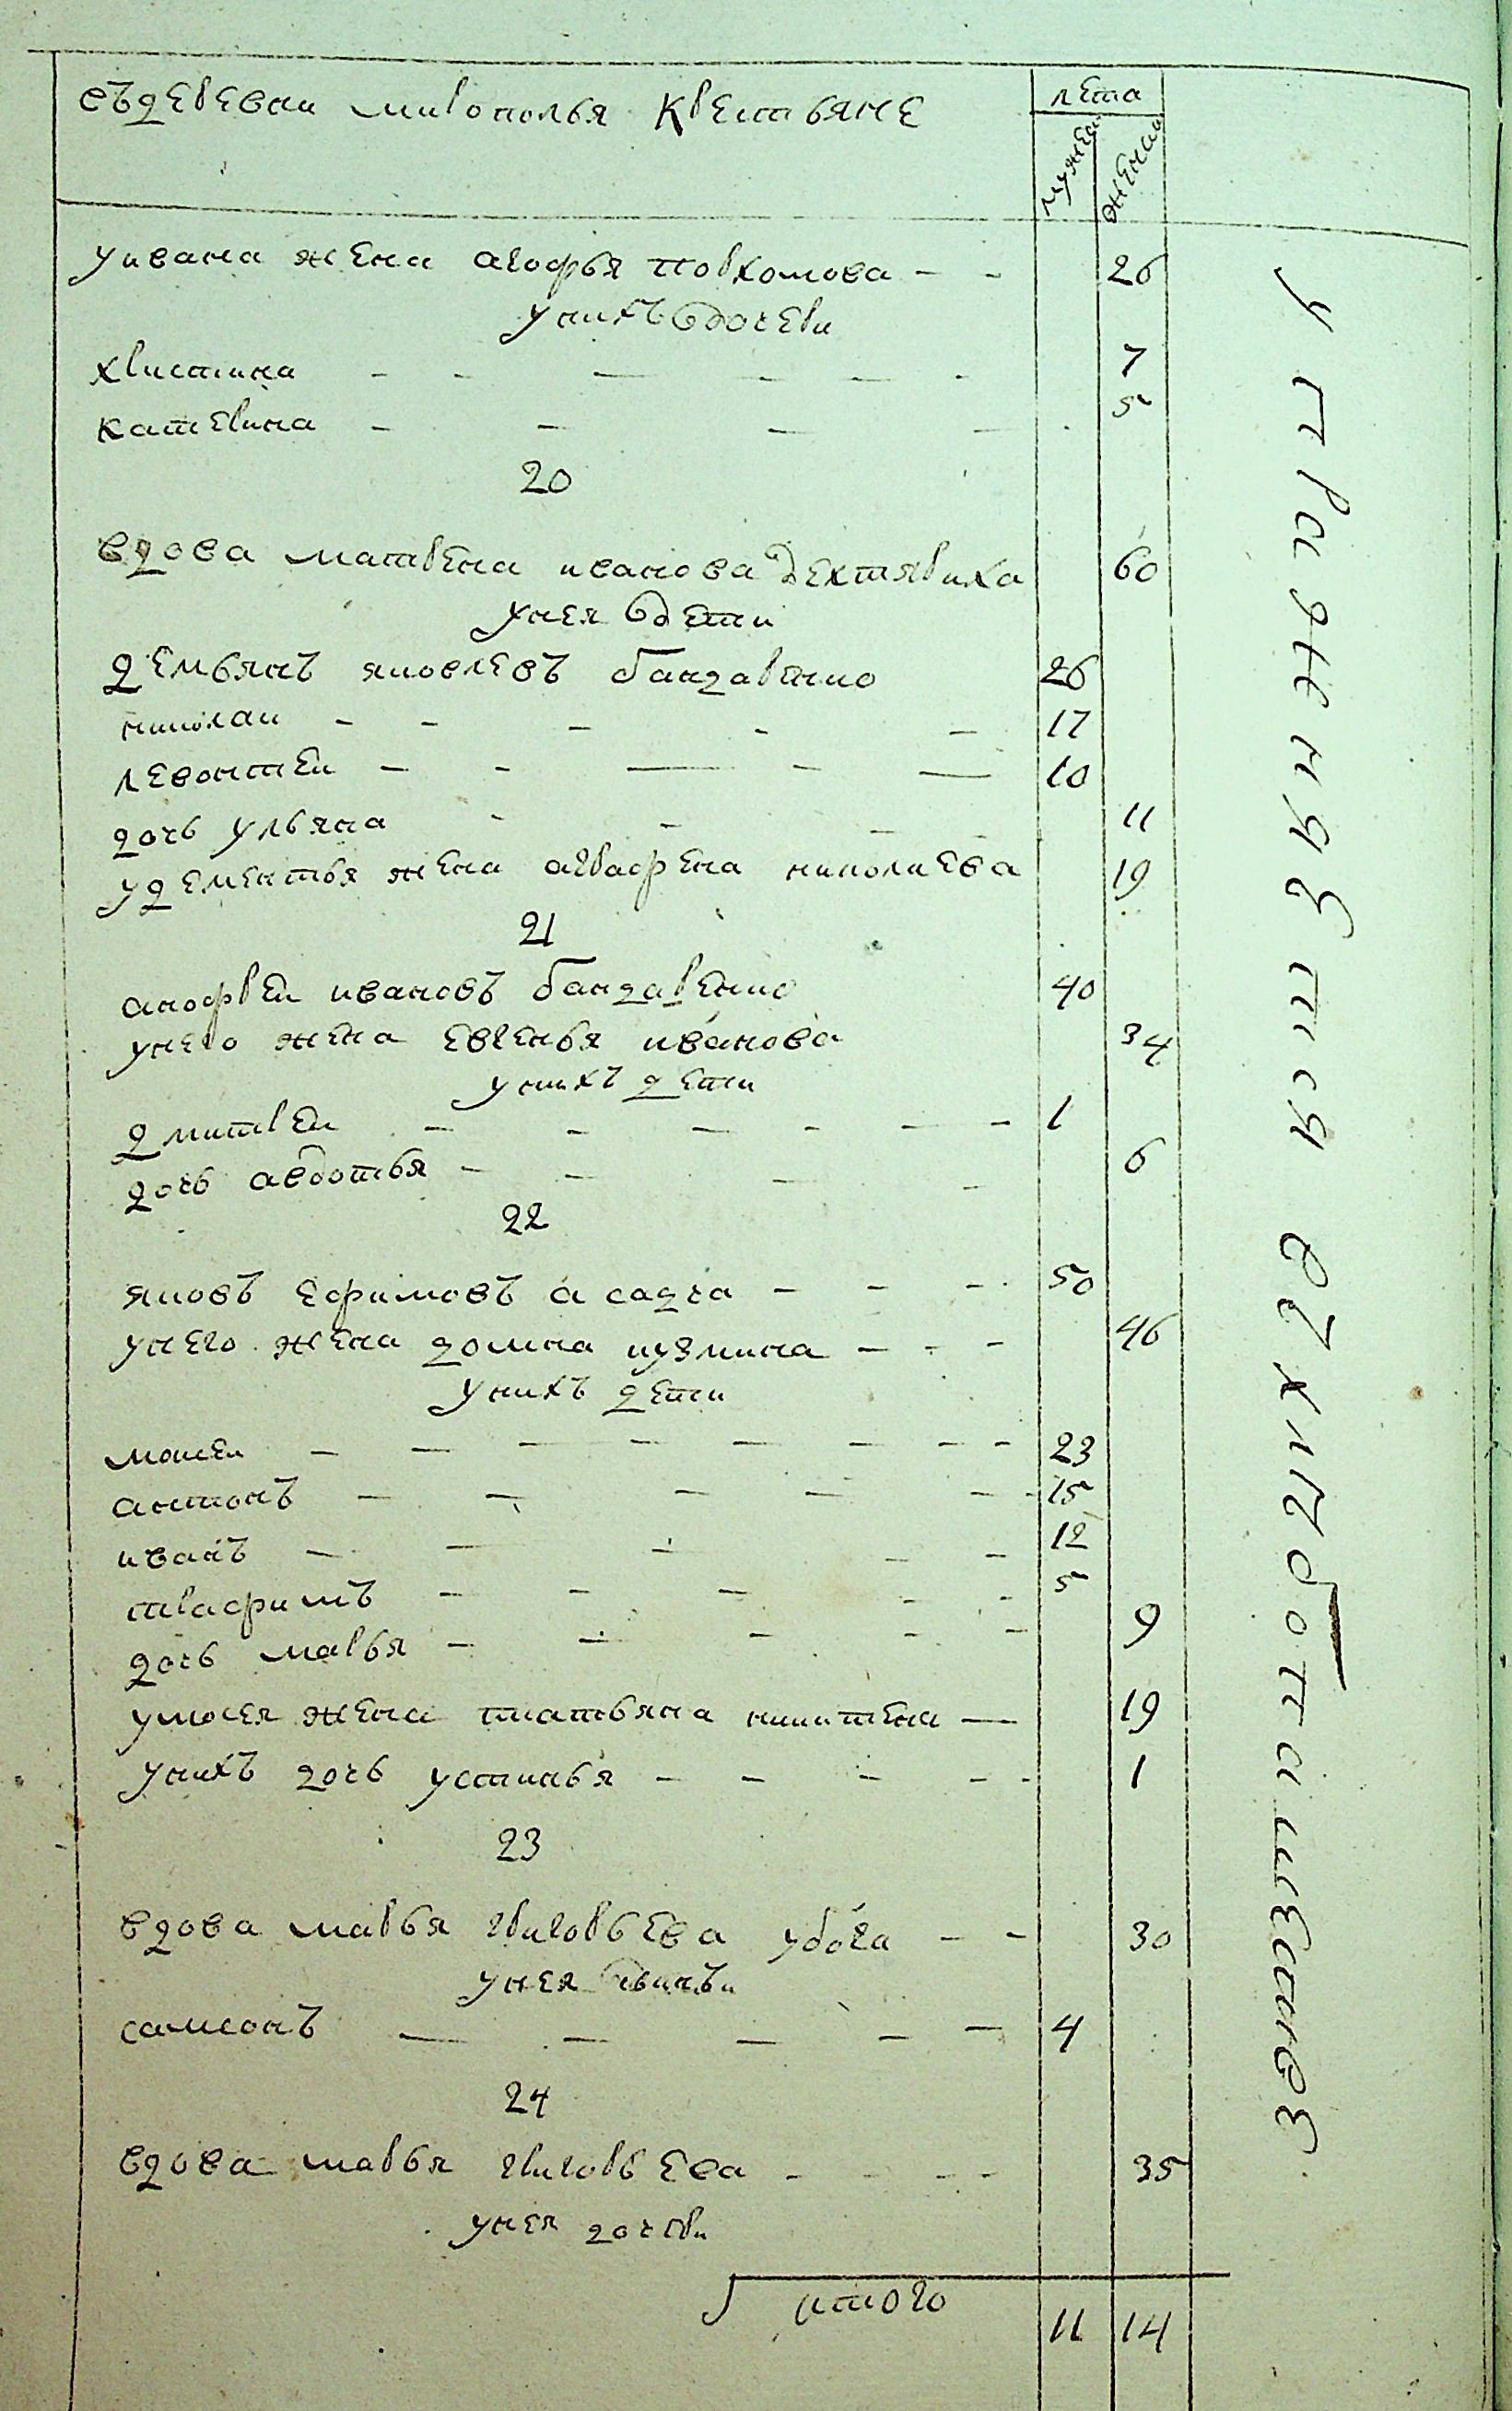 въ деревни миропольѣ крестьяне
лета
мужеска
женска
у ивана жена агофья порхомова 26
у нихъ дочери
христина 7
катерина 5
20
вдова матрена иванова дехтяриха 60
у нея дети
демьянъ яковлевъ бандаренко 26
николаи 17
левонтеи 10
дочь ульяна 11
у дементья жена аграфена николаева 19
21
анофреи ивановъ бандаренко 40
у него жена евгенья иванова 34
у нихъ дети
дмитреи 1
дочь авдотья 6
22
яковъ ефимовъ асадча 50
у него жена домна кузмина 46
у нихъ дети
мосеи 23
антонъ 15
иванъ 12
трафимъ 5
дочь марья 9
у мосея жена татьяна никитена 19
у нихъ дочь устинья 1
23
вдова марья григорьева убога 30
у нея сынъ
самсонъ 4
24
вдова марья григорьева 35
у нея дочери
итого 11 14